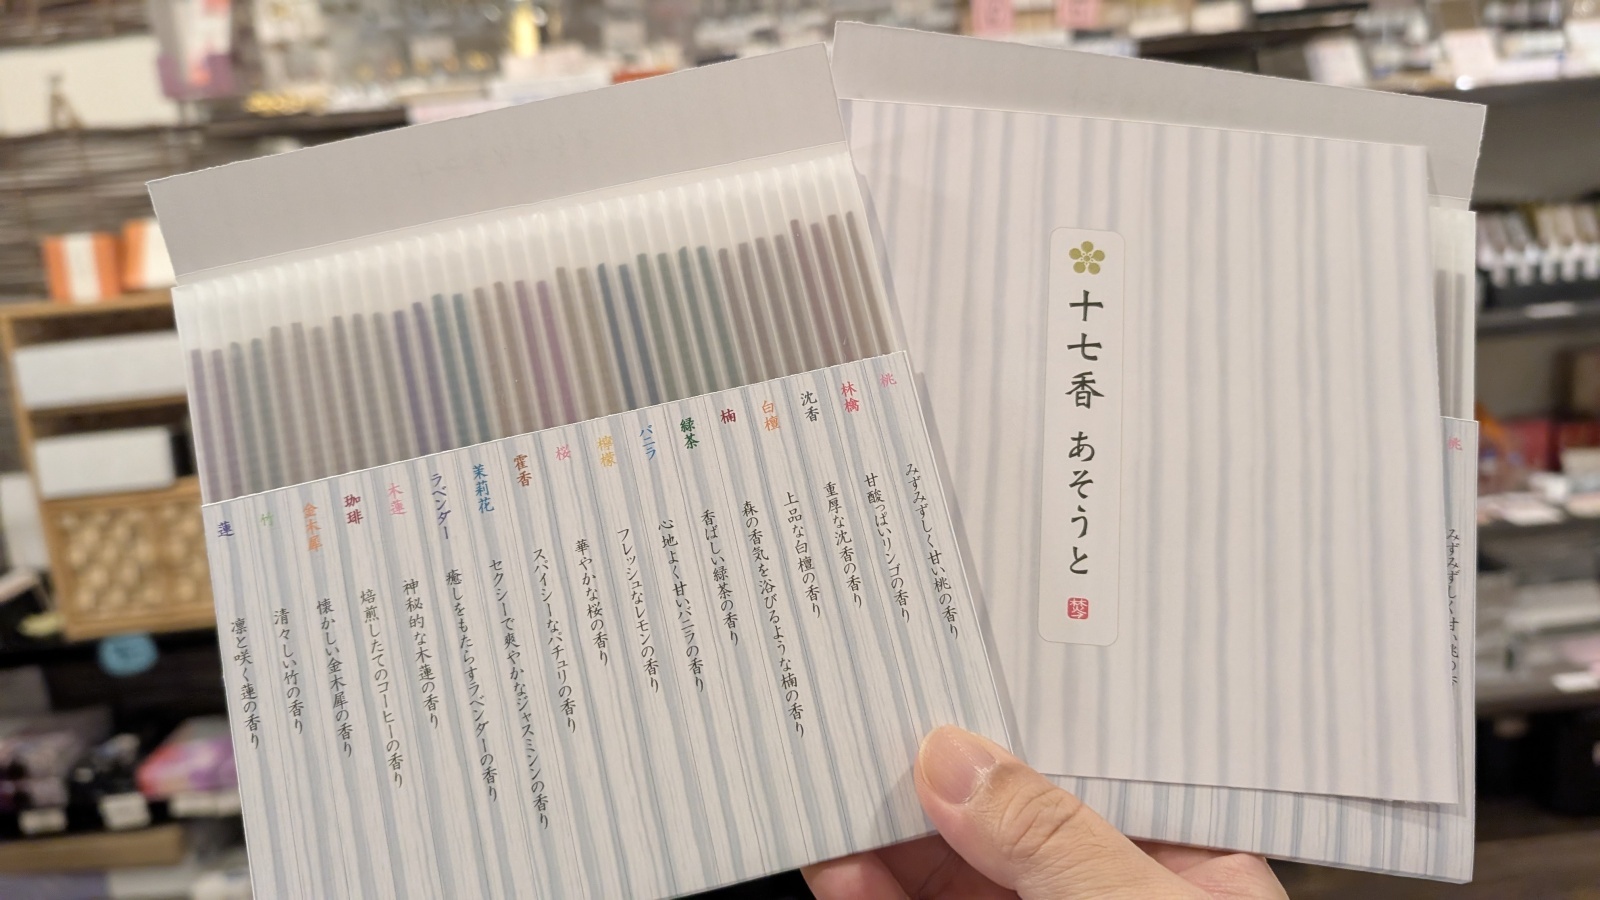 桃
みずみずしく甘い桃の香り
林檎
甘酸っぱいリンゴの香り
沈香
重厚な沈香の香り
白檀
上品な白檀の香り
楠
森の香気を浴びるような楠の香り
緑茶
香ばしい緑茶の香り
バニラ
心地よく甘いバニラの香り
檸檬
フレッシュなレモンの香り
桜
華やかな桜の香り
霍香
スパイシーなパチュリの香り
茉莉花
セクシーで爽やかなジャスミンの香り
ラベンダー
癒しをもたらすラベンダーの香り
木蓮
神秘的な木蓮の香り
珈琲
焙煎したてのコーヒーの香り
金木犀
懐かしい金木犀の香り
竹
清々しい竹の香り
蓮
凛と咲く蓮の香り
十七香 あそうと
桃
みずみずしく甘い桃の香